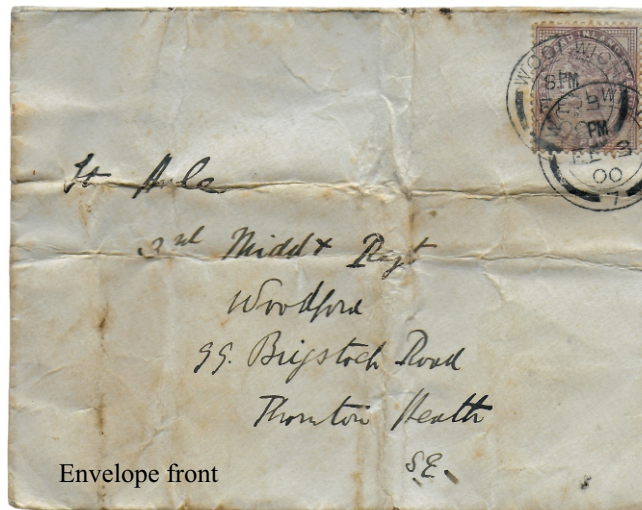 WOOLWICH
8 PM
PM
00
7
3rd Middx Regt
Woodford
99. Brigstock Road
Thornton Heath
S.E.
Envelope front